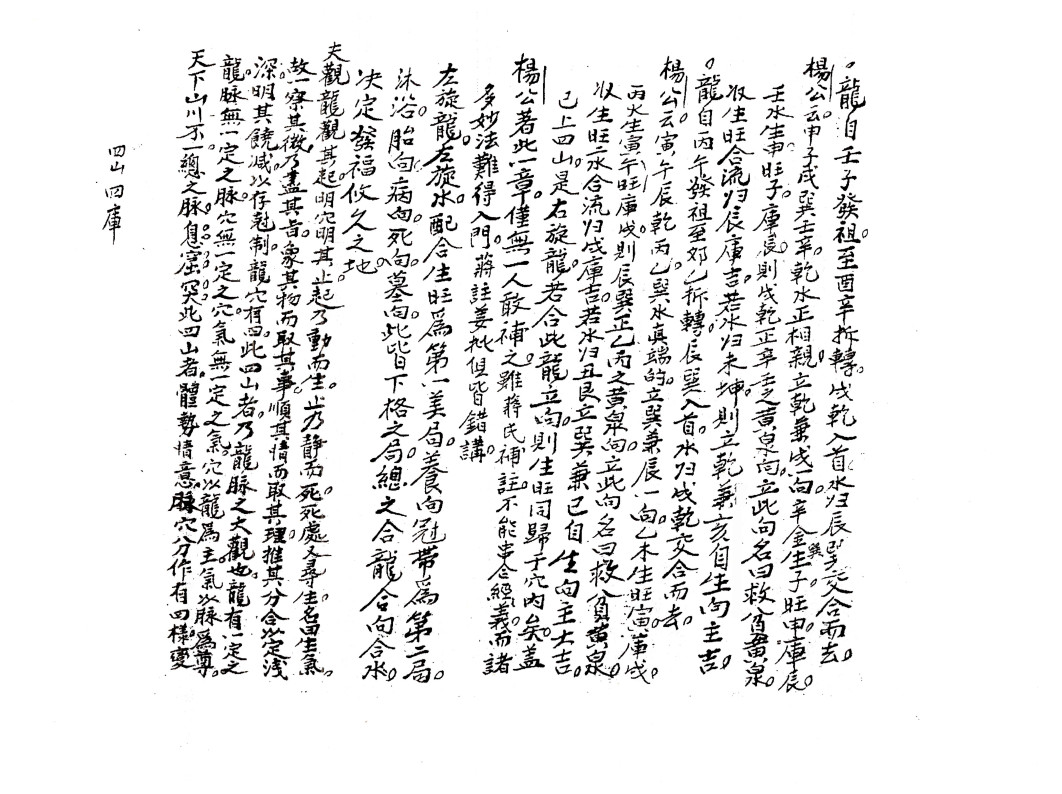 龍自壬子發祖。至酉辛拆轉。戌乾入首。水归辰巽交合而去。
楊公云。申子戌巽壬辛。乾水正相親。立乾兼戌一向。辛金生子旺申。庫辰巽。
壬水生申旺子。庫辰。則戌乾正辛壬之黄泉向。立此向名曰救貧黄泉。
收生旺合流归辰庫。吉。若水归未坤。則立乾兼亥自生向主吉。
龍自丙午發祖。至夘乙拆轉。辰巽入首。水归戌乾交合而去。
楊公云。寅午辰乾丙。乙巽水眞端的。立巽兼辰一向。乙木生旺寅。庫戌
丙火生寅午旺。庫戌。則辰巽正乙丙之黄泉向。立此向名曰救貧黄泉。
收生旺二水合流归戌庫。吉。若水归丑艮。立巽兼巳自生向主大吉。
已上四山。是右旋龍。若合此龍立向。則生旺同歸于穴内矣。盖
楊公著此一章。僅無一人敢補之。雖蒋氏補註。不能串合經義。而諸
多妙法難得入門。蔣註姜批俱皆錯講。
左旋龍。左旋水。配合生旺爲第一美局。養向冠帶爲第二局。
沐浴。胎向。病向。死向。墓向。此皆下格之局。總之合龍合向合水。
决定發福攸久之地。
夫觀龍觀其起。明穴明其止。起乃動而生。止乃静而死。死處又尋生。名曰生氣。
故一察其微。乃盡其旨。象其物而取其事。順其情而取其理。推其分合以定浅
深。明其饒减以存尅制。龍穴有四。此四山者。乃龍脉之大觀也。龍有一定之
龍。脉無一定之脉。穴無一定之穴。氣無一定之氣。穴以龍爲主。氣以脉爲尊。
天下山川不一。總之脉。息。窟。突。此四山者。體勢情意。脉穴分作有四樣變
四山四庫